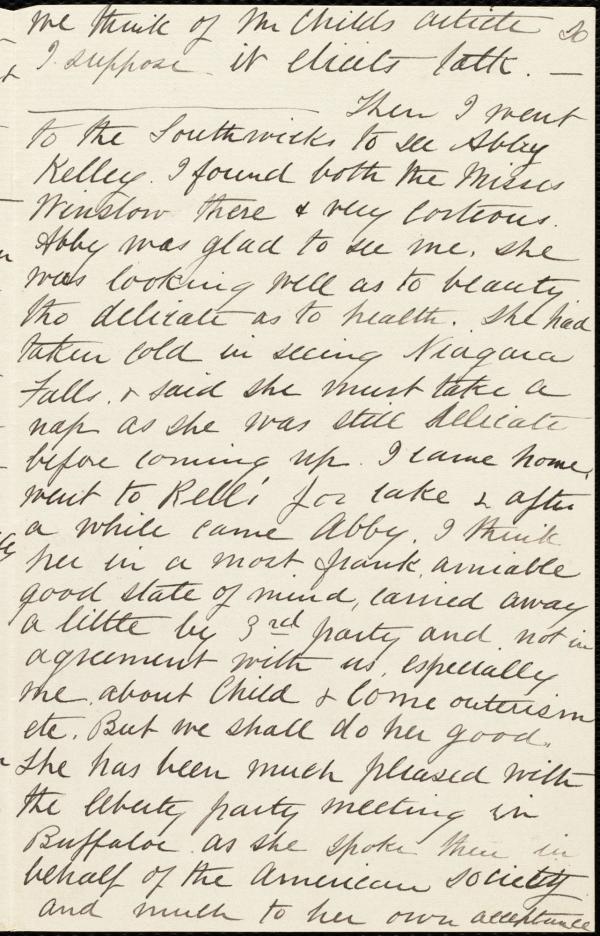 we think of Mr Childs article 20
I suppose it elicits talk. —
Then I went
to the Southwicks to see Abby
Kelley. I found both the Misses
Winslow there & very corteous.
Abby was glad to see me. She
was looking well as to beauty
tho delicate as to health. She had
taken cold in seeing Niagara
Falls, & said she must take a
nap as she was still delicate
before coming up. I came home,
went to Rell's for cake & after
a while came Abby. I think
her in a most frank, amiable
good state of mind, carried away
a little by 3rd party and not in
agreement with us, especially
me, about Child & Come outerism
etc. But we shall do her good.
She has been much pleased with
the liberty party meeting in
Buffaloe as she spoke there in
behalf of the American society
and much to her own acceptance